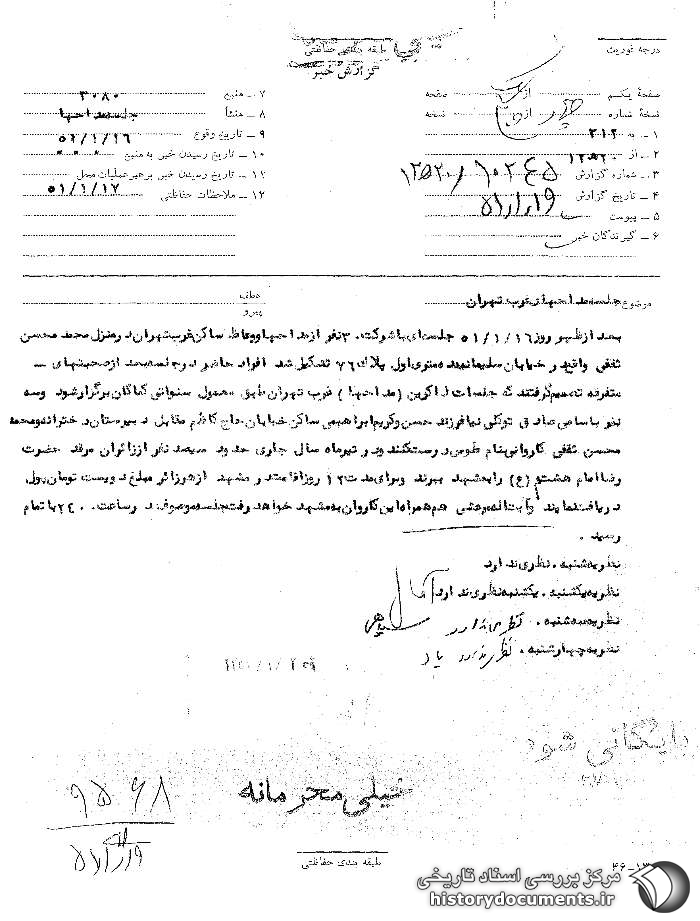 طبقه بندی حفاظتی
درجه فوریت
گزارش خبر
صفحهٔ یکم از یک صفحه
نسخهٔ شماره از نسخه
۱ ـ به ۳۱۲
۲ ـ از
۳ ـ شماره گزارش ۱۰۲۴۵ / ۱۲۵۲۰
۴ ـ تاریخ گزارش ۵۱/۱/۱۹
۵ ـ پیوست
۶ ـ گیرندگان خبر
۷ ـ منبع ۳۰۸۰
۸ ـ منشأ جلسه مداحها
۹ ـ تاریخ وقوع ۵۱/۱/۱۶
۱۰ ـ تاریخ رسیدن خبر به منبع
۱۱ ـ تاریخ رسیدن خبر به رهبر عملیات محل ۵۱/۱/۱۷
۱۲ ـ ملاحظات حفاظتی
موضوع جلسه مداحهای غرب تهران
عطف
پیرو
بعد از ظهر روز ۵۱/۱/۱۶ جلسه‌ای با شرکت ۳۰ نفر از مداحها و وعاظ ساکن غرب تهران در منزل محمد محسن
ثقفی واقع در خیابان سلیمانیه دهمتری اول پلاک ۷۶ تشکیل شد افراد حاضر در جلسه بعد از صحبتهای ـ
متفرقه تصمیم گرفتند که جلسات ذاکرین (مداحها) غرب تهران طبق معمول سنواتی کماکان برگزار شود و سه
نفر باسامی صادق توکلی نیا فرزند حسن و کریم ابراهیمی ساکن خیابان حاج کاظم مقابل دبیرستان دخترانه و محمد
محسن ثقفی کاروانی بنام طوس درست کنند و در تیرماه سال جاری حدود سیصد نفر از زائران مرقد حضرت
رضا امام هشتم (ع) را به مشهد ببرند و برای مدت ۱۲ روز اقامت در مشهد از هر زائر مبلغ دویست تومان پول
دریافت نمایند هم همراه این کاروان به مشهد خواهد رفت جلسه موصوف در ساعت ۲۴۰۰ با تمام
رسید .
نظریه شنبه . نظری ندارد
نظریه یکشنبه . یکشنبه نظری ندارد
نظریه سه‌شنبه . نظری ندارد
نظریه چهارشنبه . نظری ندارد
بایگانی شود
خیلی محرمانه
۹۵۶۸
۵۱/۱/۱۹
طبقه بندی حفاظتی
مرکز بررسی اسناد تاریخی
historydocuments.ir